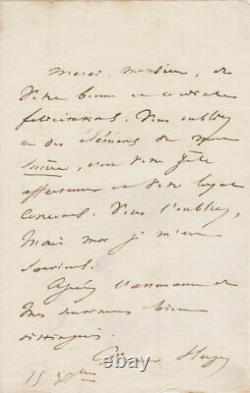 Merci, monsieur, de
votre bonne et cordiale
félicitations. Vous oubliez
un des éléments de mon
succès,
affectueux et votre loyal
concours. Vous l'oubliez,
Mais moi je m'en
souviens.
Agréez l'assurance de
mes sentiments bien
distingués.
Hugo
15 Xbre
© ebay.com